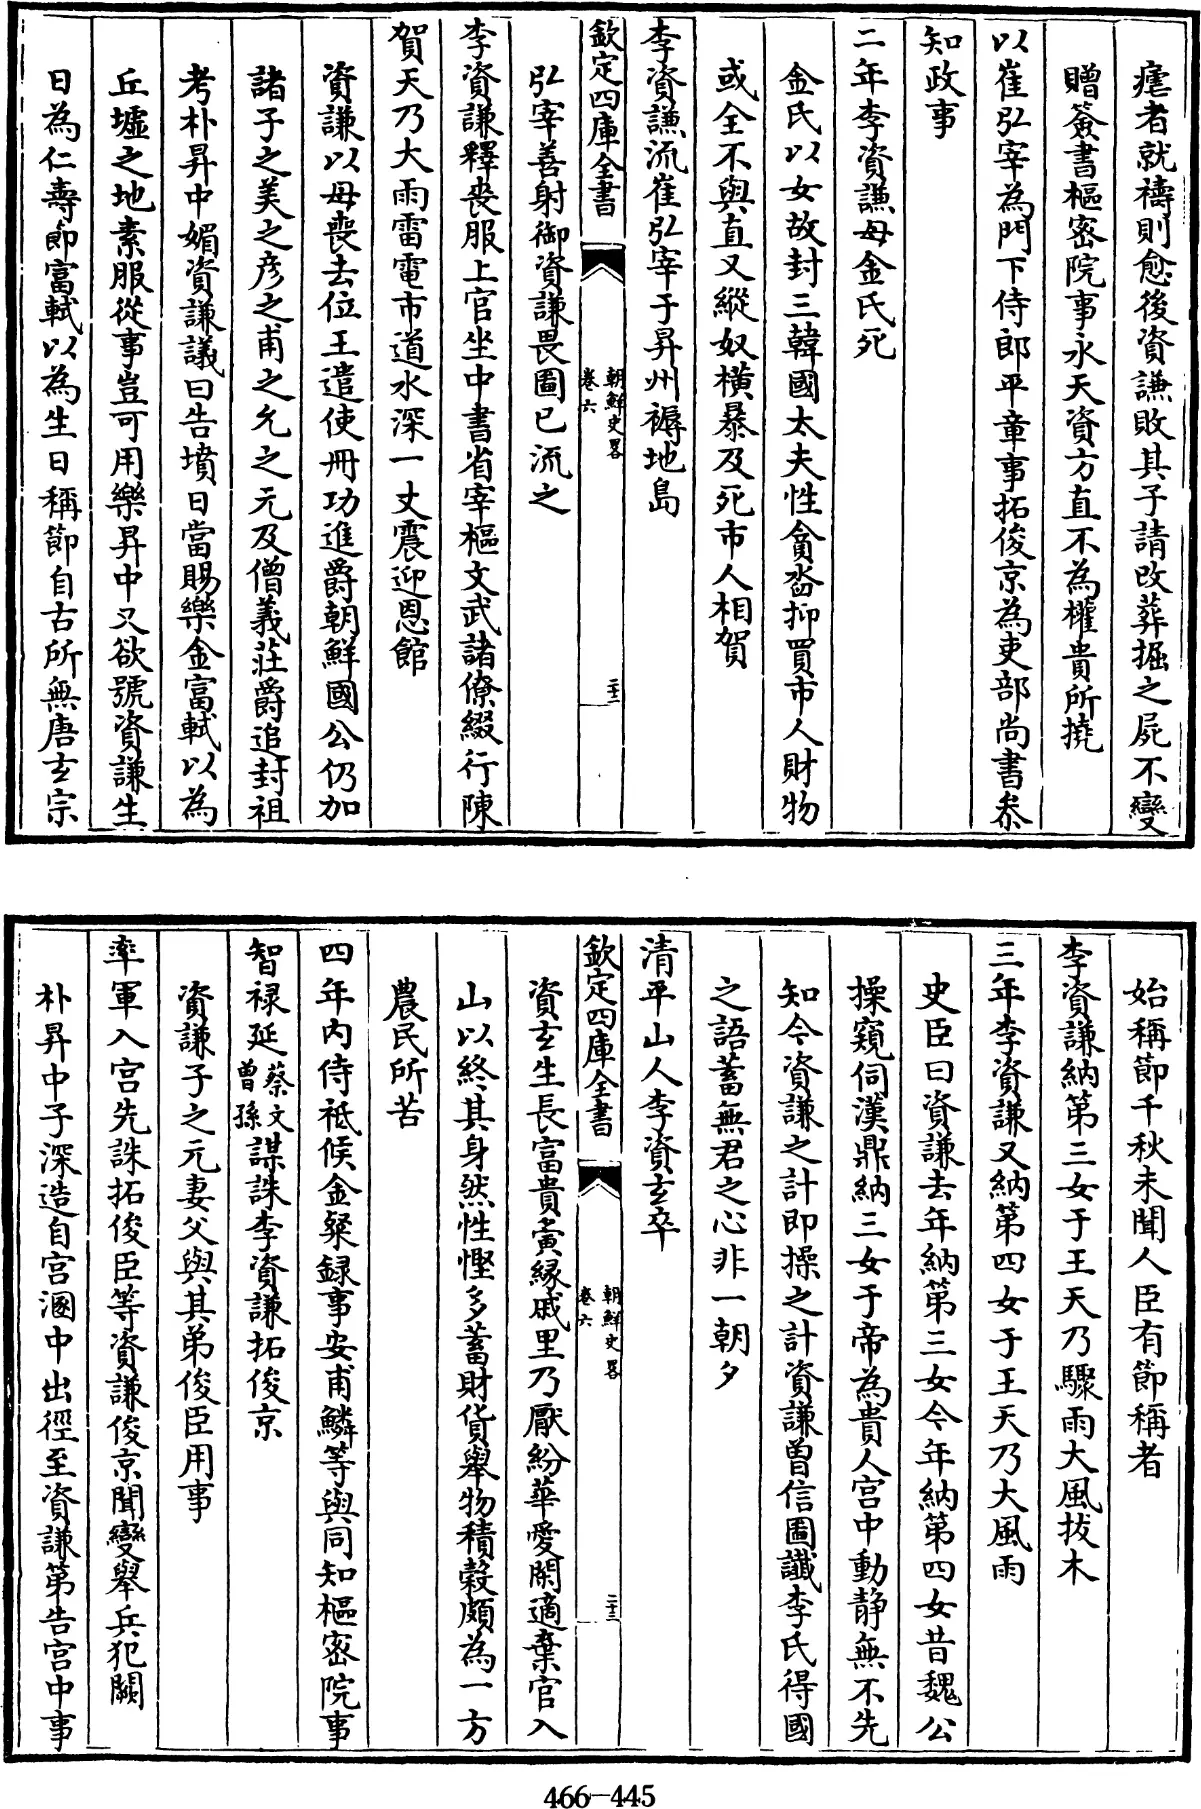 瘧者就禱則愈後資謙敗其子請改葬掘之屍不變
贈簽書樞密院事永天資方直不為權貴所撓
以崔弘宰為門下侍郎平章事拓俊京為吏部尚書叅
知政事
二年李資謙母金氏死
金氏以女故封三韓國太夫性貪㳫抑買市人財物
或全不與直又縱奴橫暴及死市人相賀
李資謙流崔弘宰于昇州褥地島
欽定四庫全書
朝鮮史畧
卷六
二十二
弘宰善射御資謙畏圖已流之
李資謙釋喪服上官坐中書省宰樞文武諸僚綴行陳
賀天乃大雨雷電市道水深一丈震迎恩館
資謙以母喪去位王遣使冊功進爵朝鮮國公仍加
諸子之美之彦之甫之允之元及僧義莊爵追封祖
考朴昇中媚資謙議曰告墳日當賜樂金富軾以為
丘墟之地素服從事豈可用樂昇中又欲號資謙生
日為仁壽節富軾以為生日稱節自古所無唐玄宗
始稱節千秋未聞人臣有節稱者
李資謙納第三女于王天乃驟雨大風拔木
三年李資謙又納第四女于王天乃大風雨
史臣曰資謙去年納第三女今年納第四女昔魏公
操窺伺漢鼎納三女于帝為貴人宫中動静無不先
知今資謙之計即操之計資謙曾信圖讖李氏得國
之語蓄無君之心非一朝夕
清平山人李資玄卒
欽定四庫全書
朝鮮史畧
卷六
二十三
資玄生長富貴夤緣戚里乃厭紛華愛閑適棄官入
山以終其身然性慳多蓄財貨舉物積穀頗為一方
農民所苦
四年内侍祗候金粲録事安甫鱗等與同知樞密院事
智禄延蔡文曾孫謀誅李資謙拓俊京
資謙子之元妻父與其弟俊臣用事
率軍入宫先誅拓俊臣等資謙俊京聞變舉兵犯闕
朴昇中子深造自宫溷中出徑至資謙第告宫中事
466-445